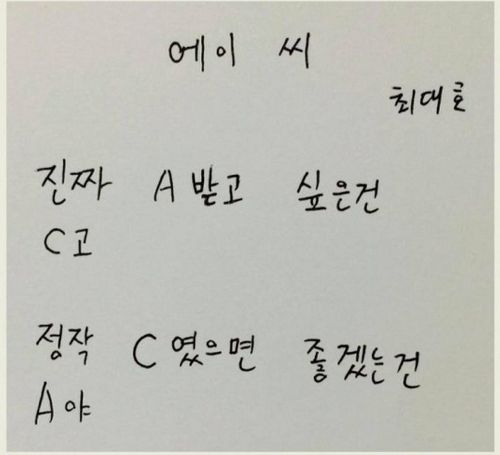 에이 씨
최대호
진짜 A받고 싶은건
C고
정작 C였으면 좋겠는건
A야